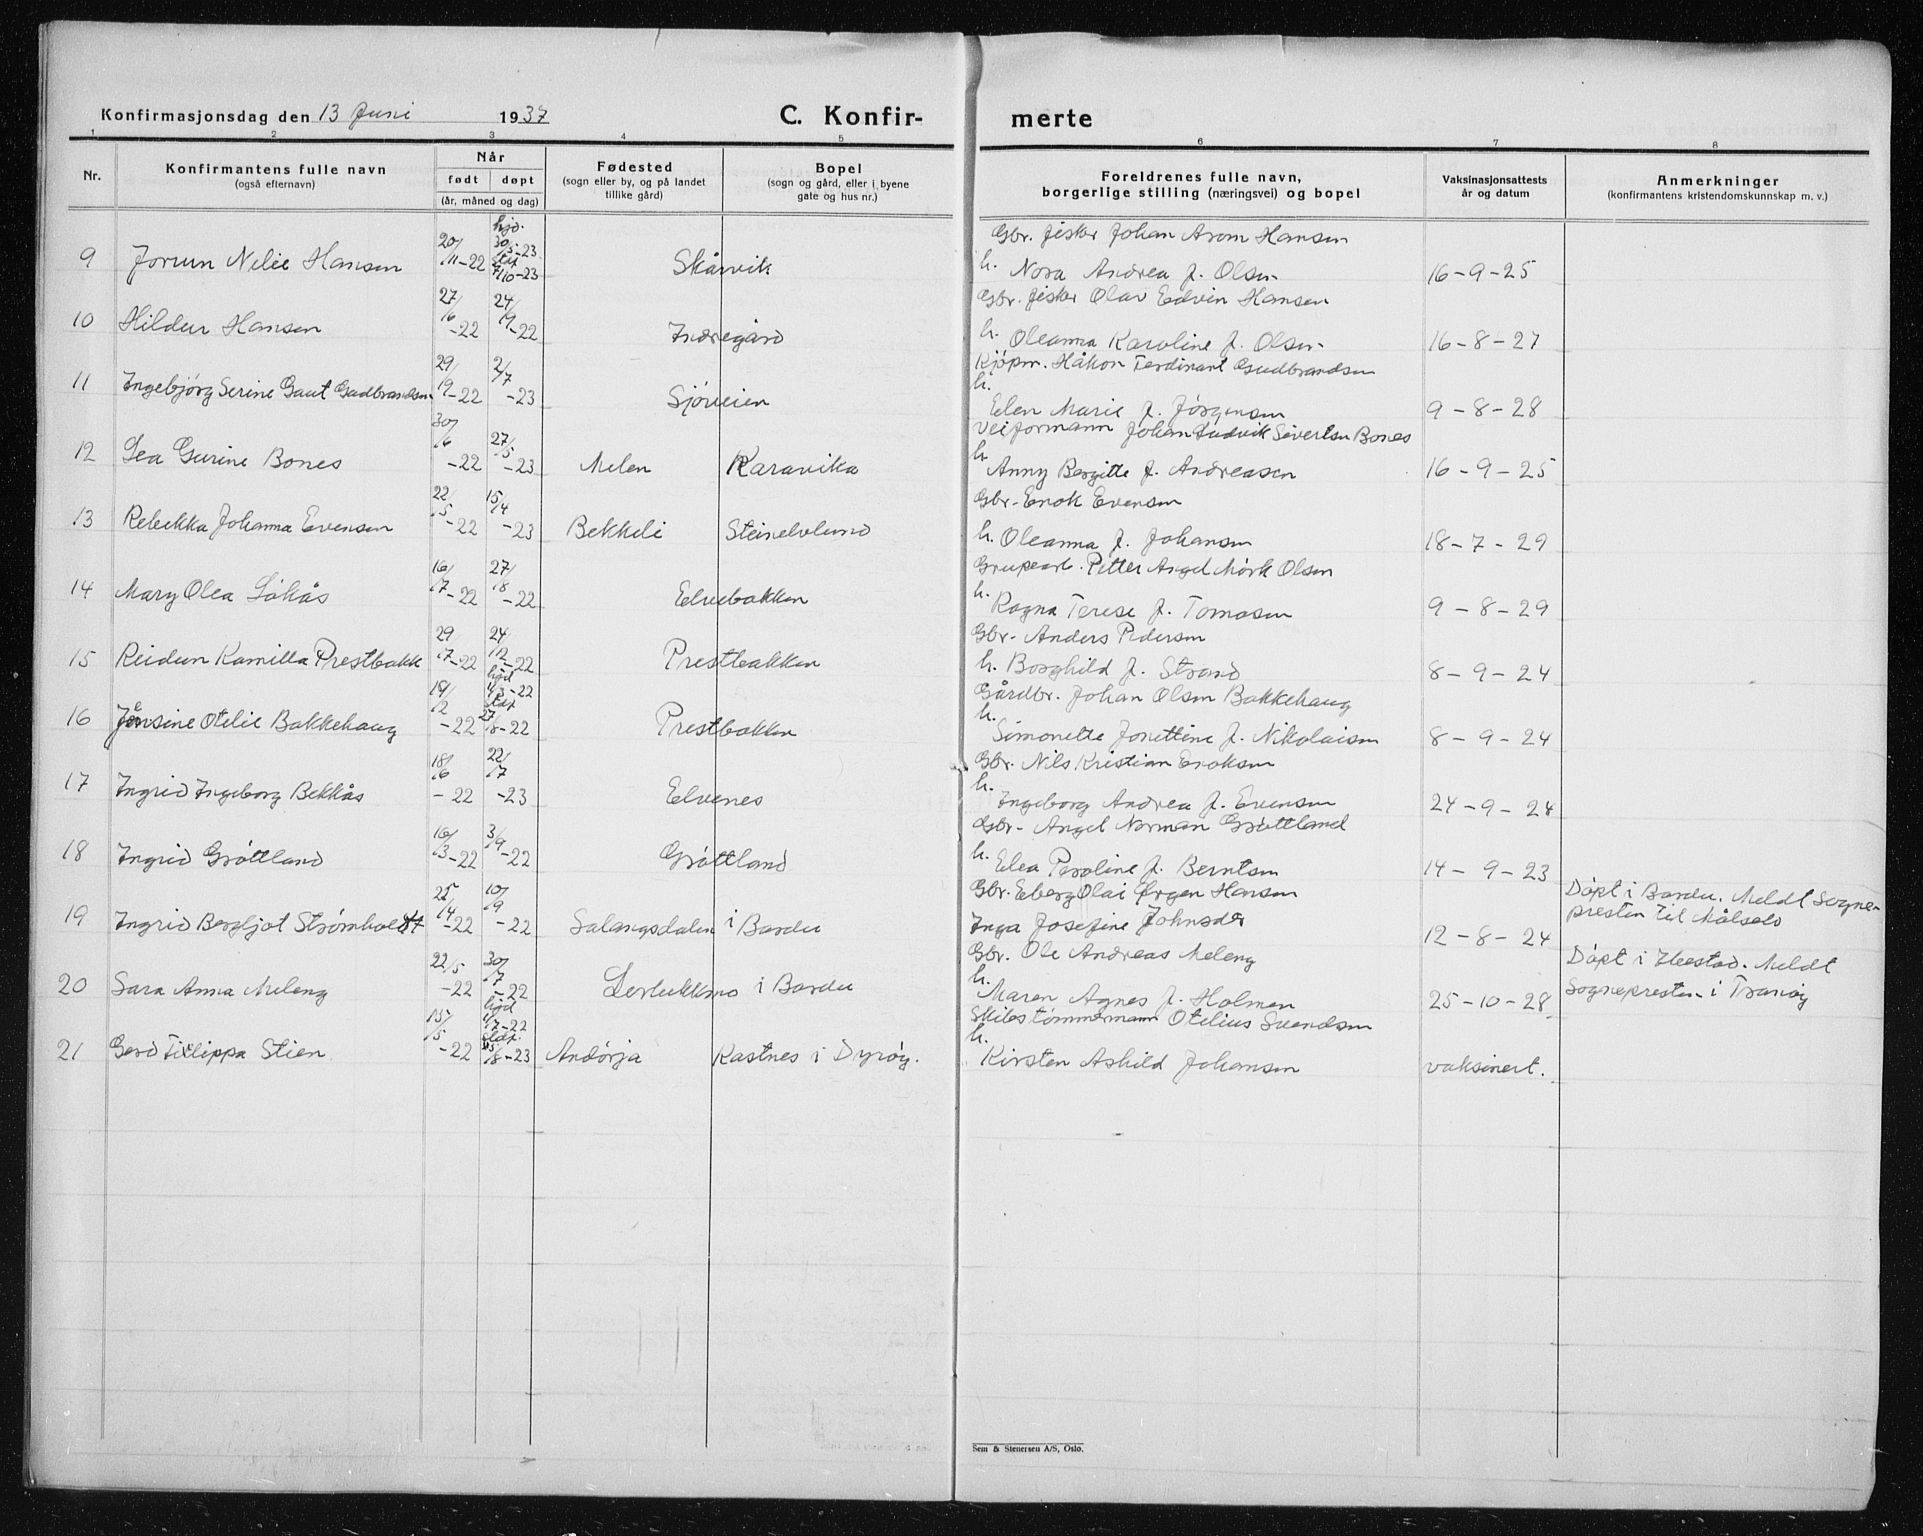 Konfirmasjonsdag den 13 Juni 1937 C. Konfir-
merte
1 2 3 4 5
6 7 8
Nr. Konfirmantens fulle navn (også efternavn) Når født døpt (år, måned og dag) Fødested (sogn eller by, og på landet tillike gård) Bopel (sogn og gård, eller i byene gate og hus nr.)
Foreldrenes fulle navn, borgerlige stilling (næringsvei) og bopel Vaksinasjonsattests år og datum Anmerkninger (konfirmantens kristendomskunnskap m. v.)
Gbr. fisker Johan Arom Hansen
9 Jorun Nelie Hansen 20/11-22 hjd. 30/5-23 stdf. 7/10-23 Skårvik h. Nora Andrea f. Olsen 16-9-25
Gbr. fisker Olav Edvin Hansen
10 Hildur Hansen 27/6-22 24/9-22 Indregård h. Oleanna Karoline f. Olsen 16-8-27
Kjøpm. Håkon Ferdinant Gudbrandsen
11 Ingebjørg Serine Gaut Gudbrandsen 29/9-22 2/7-23 Sjøveien h. Elen Marie f. Jørgensen 9-8-28
Veiformann Johan Ludvik Sivertsen Bones
12 Lea Gurine Bones 30/6-22 27/5-23 Melen Karavika h. Anny Bergitte f. Andreasen 16-9-25
Gbr. Enok Evensen
13 Rebekka Johanna Evensen 22/5-22 15/4-23 Bekkeli Steinelvlund h. Oleanna f. Johansen 18-7-29
Grupearb. Petter Angel Mørk Olsen
14 Mary Olea Løkås 16/7-22 27/8-22 Elvebakken h. Ragna Terese f. Tomasen 9-8-29
Gbr. Anders Pedersen
15 Reidun Kamilla Prestbakk 29/7-22 24/12-22 Prestbakken h. Borghild f. Strand 8-9-24
Gårdbr. Johan Olsen Bakkehaug
16 Jensine Otelie Bakkehaug 19/2-22 hjd 4/3-22 stdf. 27/8-22 Prestbakken h. Simonette Jonettine f. Nikolaisen 8-9-24
Gbr. Nils Kristian Enoksen
17 Ingrid Ingeborg Bekkås 18/6-22 22/7-23 Elvenes h. Ingeborg Andrea f. Evensen 24-9-24
Gbr. Angel Norman Grøttland
18 Ingrid Grøttland 16/3-22 3/9-22 Grøttland h. Elea Paroline f. Berntsen 14-9-23
Gbr. Eberg Olai Ørgen Hansen Døpt i Bardu. Meldt Sogne-
19 Ingrid Bergljot Strømholt 25/4-22 10/9-22 Salangsdalen i Bardu Inga Josefine Johnsdr 12-8-24 presten til Målselv
Gbr. Ole Andreas Meleng Døpt i Ibestad. Meldt
20 Sara Anna Meleng 22/5-22 30/7-22 Levlukkmo i Bardu h. Maren Agnes f. Holmen 25-10-28 Sognepresten i Tranøy
Skibstømmermann Otelius Svendsen
21 Gerd Fillippa Stien 15/5-22 hjd 4/7-22 stdf. 5/8-23 Andørja Kastnes i Dyrøy. h. Kirsten Ashild Johansen vaksinert.
Sem & Stenersen A/S, Oslo.